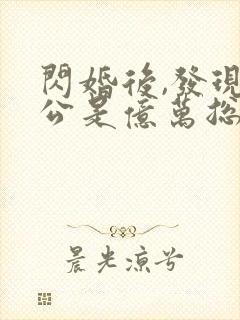 閃婚後,發現
公是億萬總
晨光涼兮